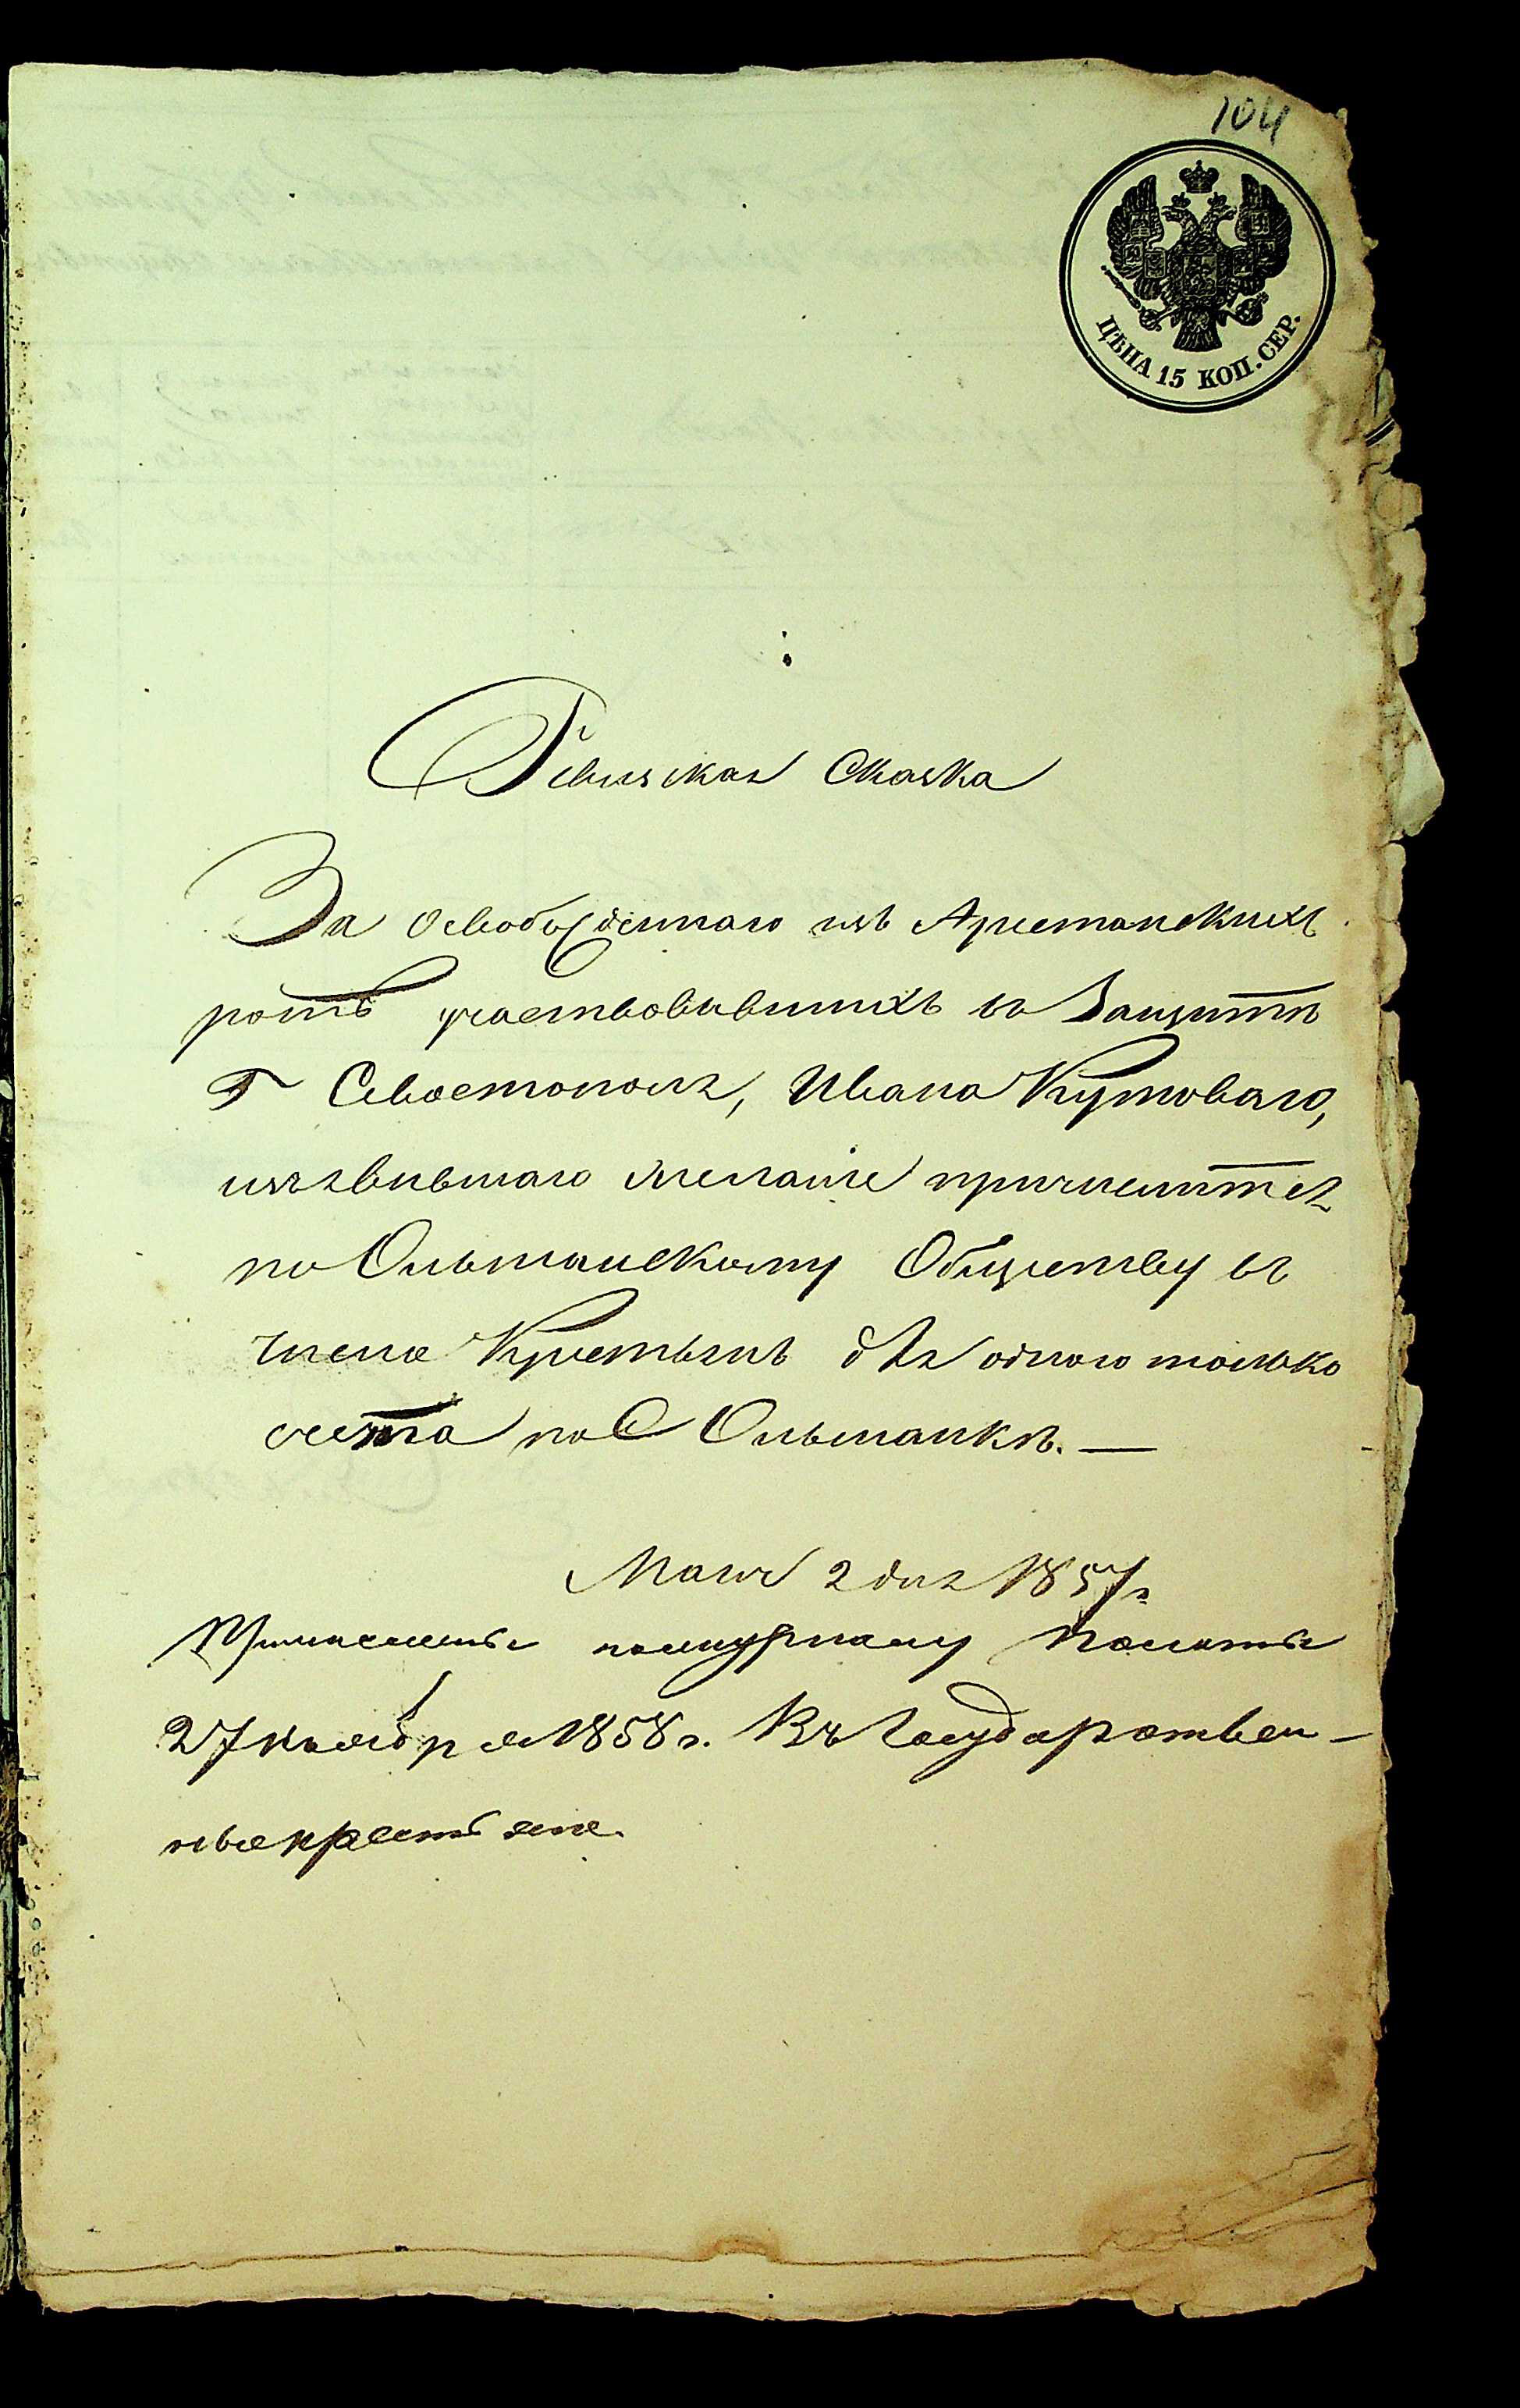 104
ЦѢНА 15 КОП. СЕР.
Ревизская Сказка
За освобожденнаго изъ Арестанскихъ
ротъ участвовавшихъ въ Защитѣ
Г Севостополя, Ивана Кутоваго,
изъявившаго желаніе причислитъся
по Ольшанскому Обществу въ
число Крестьянъ для одного только
счета по С Ольшанкѣ. —
Маія 2 дня 1857г
Причисленъ по журналу Палаты
27 ноября 1858 г. Въ Государствен-
ные крестьяне.